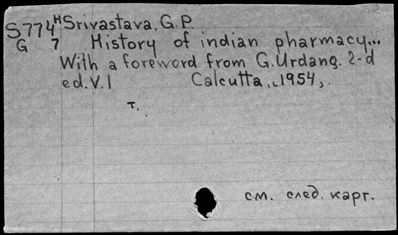 S774H Srivastava, G.P.
G 7 History of indian pharmacy...
With a foreword from G.Urdang. 2-d
ed. V.1 Calcutta, 1954,.
т.
см. след. карт.